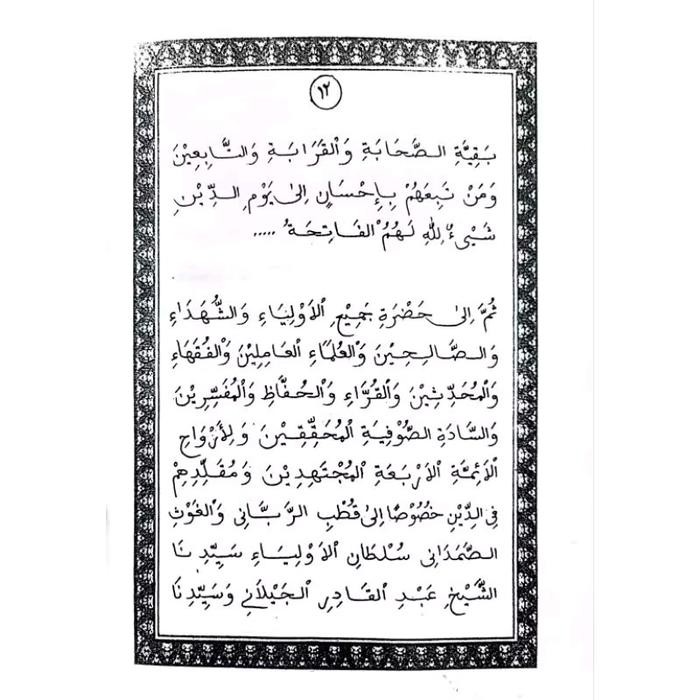 ١٢
بَقِيَّةِ الصَّحَابَةِ وَالْقَرَابَةِ وَالتَّابِعِيْنَ
وَمَنْ تَبِعَهُمْ بِإِحْسَانٍ اِلىٰ يَوْمِ الدِّيْنِ
شَيْءٌ لِلّٰهِ لَهُمُ الْفَاتِحَةُ .....
ثُمَّ اِلىٰ حَضْرَةِ جَمِيْعِ الْاَوْلِيَاءِ وَالشُّهَدَاءِ
وَالصَّالِحِيْنَ وَالْعُلَمَاءِ الْعَامِلِيْنَ وَالْفُقَهَاءِ
وَالْمُحَدِّثِيْنَ وَالْقُرَّاءِ وَالْحُفَّاظِ وَالْمُفَسِّرِيْنَ
وَالسَّادَةِ الصُّوْفِيَةِ الْمُحَقِّقِيْنَ وَلِأَرْوَاحِ
الْاَئِمَّةِ الْاَرْبَعَةِ الْمُجْتَهِدِيْنَ وَمُقَلِّدِهِمْ
فِى الدِّيْنِ خُصُوْصًا اِلىٰ قُطْبِ الرَّبَّانِى وَالْغَوْثِ
الصَّمَدَانِى سُلْطَانِ الْاَوْلِيَاءِ سَيِّدِنَا
الشَّيْخِ عَبْدِ الْقَادِرِ الْجَيْلَانِي وَسَيِّدِنَا